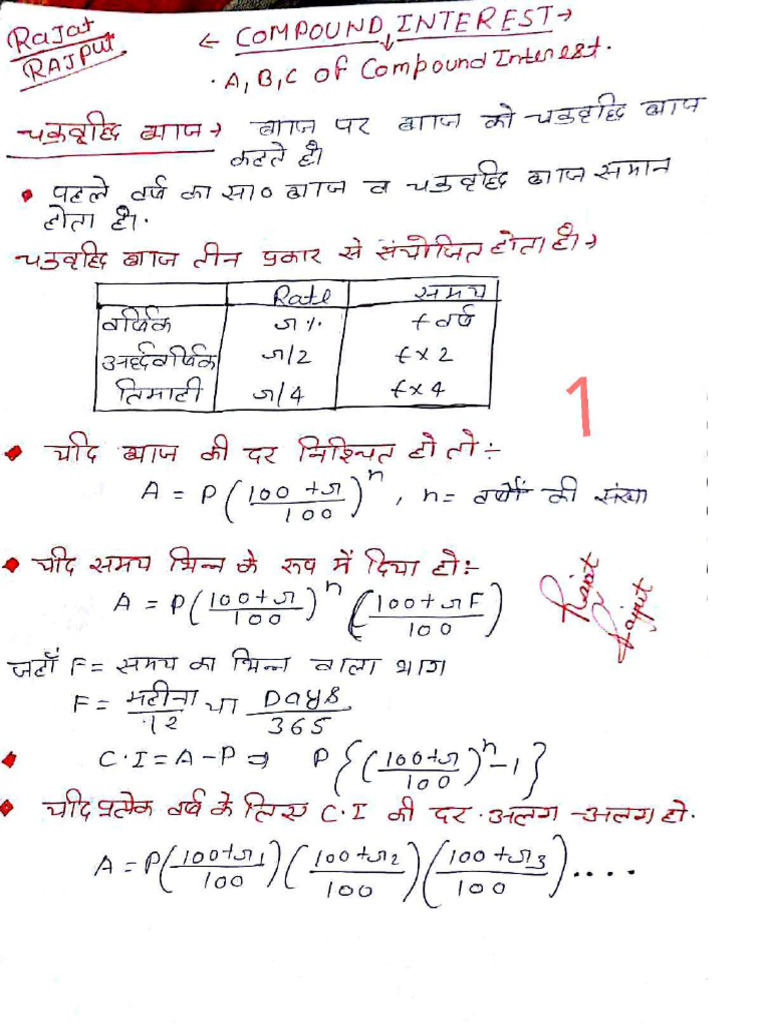 Rajat
RAJPUT
← COMPOUND INTEREST →
. A, B, C of Compound Interest.
चक्रवृद्धि ब्याज → ब्याज पर ब्याज को चक्रवृद्धि ब्याज
कहते है।
• पहले वर्ष का सा० ब्याज व चक्रवृद्धि ब्याज समान
होता है।.
चक्रवृद्धि ब्याज तीन प्रकार से संयोजित होता है। →
Rate समय
वार्षिक r% t वर्ष
अर्द्धवार्षिक r/2 t x 2
तिमाही r/4 t x 4
1
• यदि ब्याज की दर निश्चित हो तो :-
A = P((100 + r)/100)^n , n = वर्षों की संख्या
• यदि समय भिन्न के रूप में दिया हो :-
A = P((100 + r)/100)^n ((100 + rF)/100)
Rajat
Rajput
जहाँ F = समय का भिन्न वाला भाग
F = महीना/12 या Days/365
• C.I = A - P ⇒ P{((100 + r)/100)^n - 1}
• यदि प्रत्येक वर्ष के लिए C.I की दर अलग -अलग हो.
A = P((100 + r1)/100)((100 + r2)/100)((100 + r3)/100)....